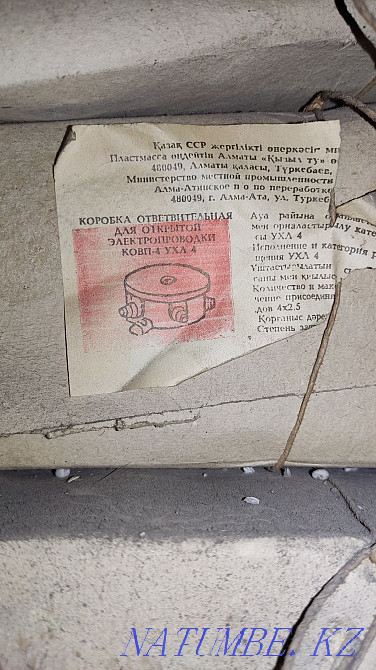 Қазақ ССР жергілікті өнеркәсіг
Пластмасса өңдейтін Алматы «Қызыл ту»
480049, Алматы қаласы, Туркебаев,
Министерство местной промышленности
Алма-Атинское п о по переработке
480049, г. Алма-Ата, ул. Туркеб
КОРОБКА ОТВЕТВИТЕЛЬНАЯ
ДЛЯ ОТКРЫТОЙ
ЭЛЕКТРОПРОВОДКИ
КОВП-4 УХЛ 4
Ауа райына
мен орналастырылу кате
сы УХЛ 4
Исполнение и категория р
щения УХЛ 4
Количество и мак
чение присоедин
дов 4х2,5
Қорғаныс дәре
Степень
NATUMBE.KZ